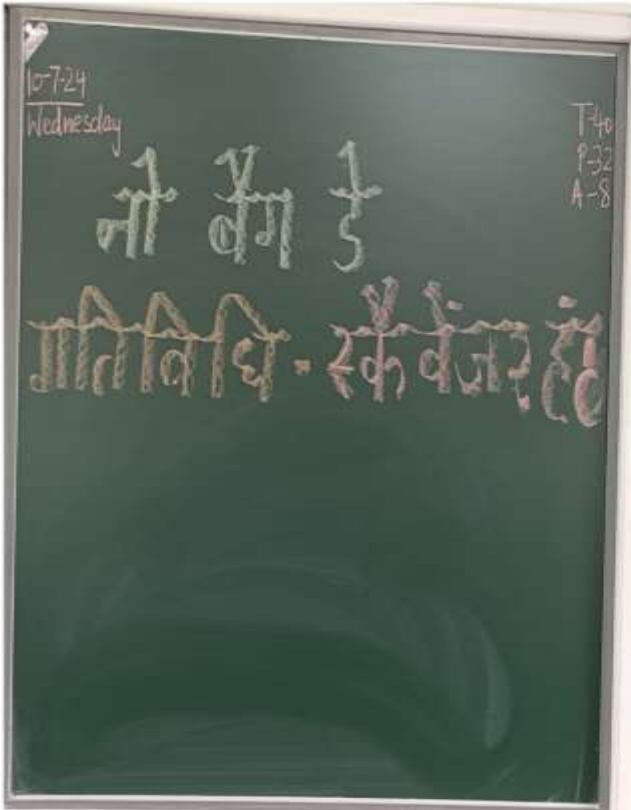 10-7-24
Wednesday
T-40
P-32
A-8
नो बैग डे
गतिविधि - स्कैवेंजर हंट